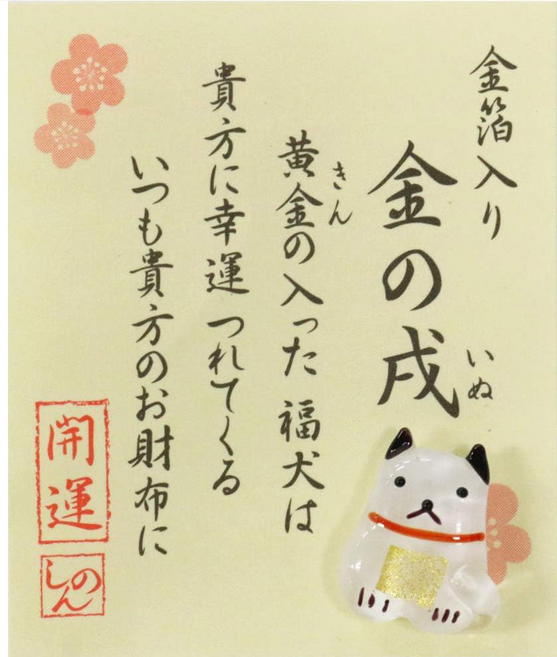 金箔入り
金の戌
いぬ
黄金の入った福犬は
きん
貴方に幸運つれてくる
いつも貴方のお財布に
開運
しんの